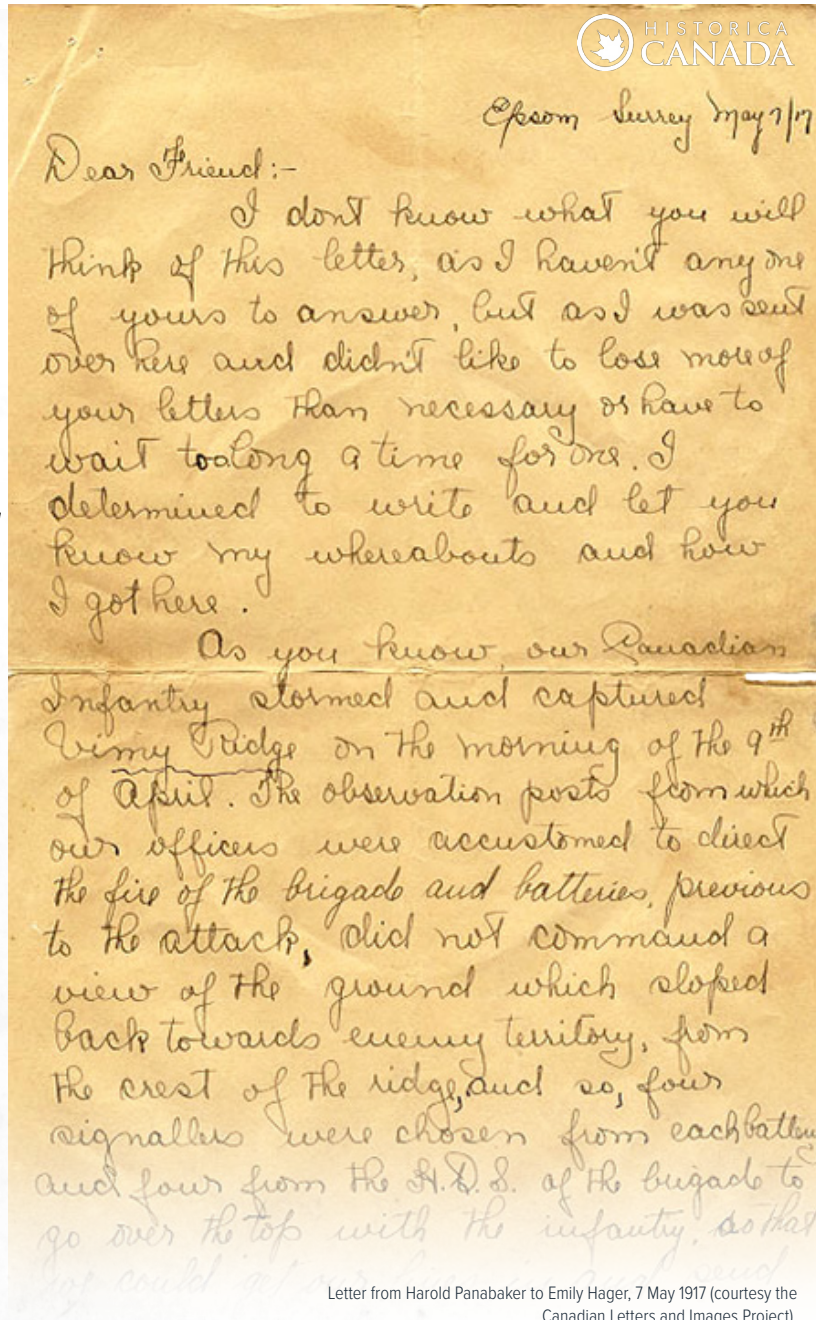 HISTORICA
CANADA
Epsom Surrey May 7/17
Dear Friend:-
I don't know what you will
think of this letter, as I haven't any one
of yours to answer, but as I was sent
over here and didn't like to lose more of
your letters than necessary or have to
wait too long a time for one. I
determined to write and let you
know my whereabouts and how
I got here.
As you know, our Canadian
Infantry stormed and captured
Vimy Ridge on the morning of the 9th
of April. The observation posts from which
our officers were accustomed to direct
the fire of the brigade and batteries, previous
to the attack, did not command a
view of the ground which sloped
back towards enemy territory, from
the crest of the ridge, and so, four
signallers were chosen from each battery
and four from the H.D.S. of the brigade to
go over the top with the infantry, so that
could get our
Letter from Harold Panabaker to Emily Hager, 7 May 1917 (courtesy the
Canadian Letters and Images Project).